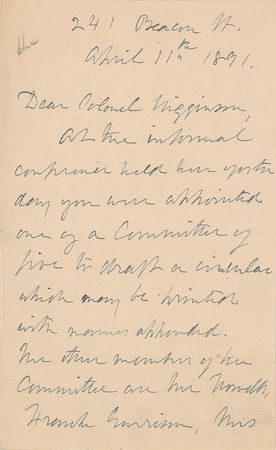 241 Beacon St.
April 11th 1891.
Dear Colonel Higginson,
At the informal
conference held here yester
day you were appointed
one of a Committee of
five to draft a circular
which may be printed
with names appended.
The other members of the
Committee are
Francis Garrison, Mrs